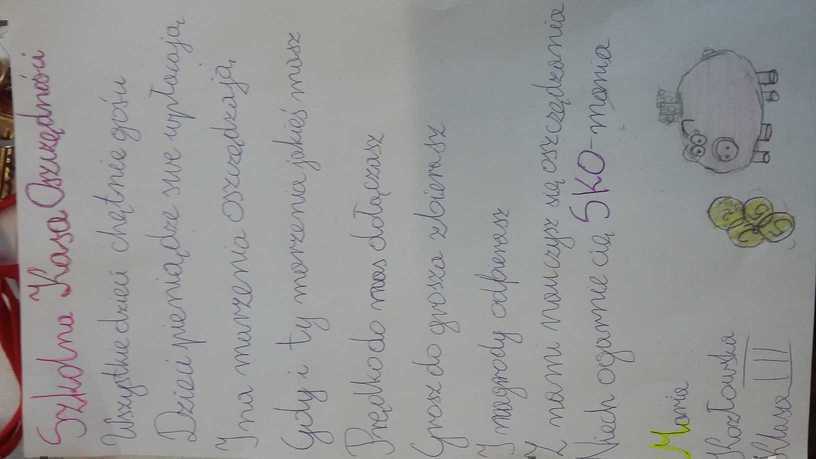 Szkolna Kasa Oszczędności
Wszystkie dzieci chętnie
Dzieci pieniądze swe wpłacają
I na marzenia oszczędzają
Gdy i ty marzenia jakieś masz
Prędko do nas dołączasz
Grosz do grosza zbierasz
I nagrody odbierasz
Z nami nauczysz się oszczędzania
Niech ogarnie cię SKO-mania
Maria
Kozłowska
Klasa III